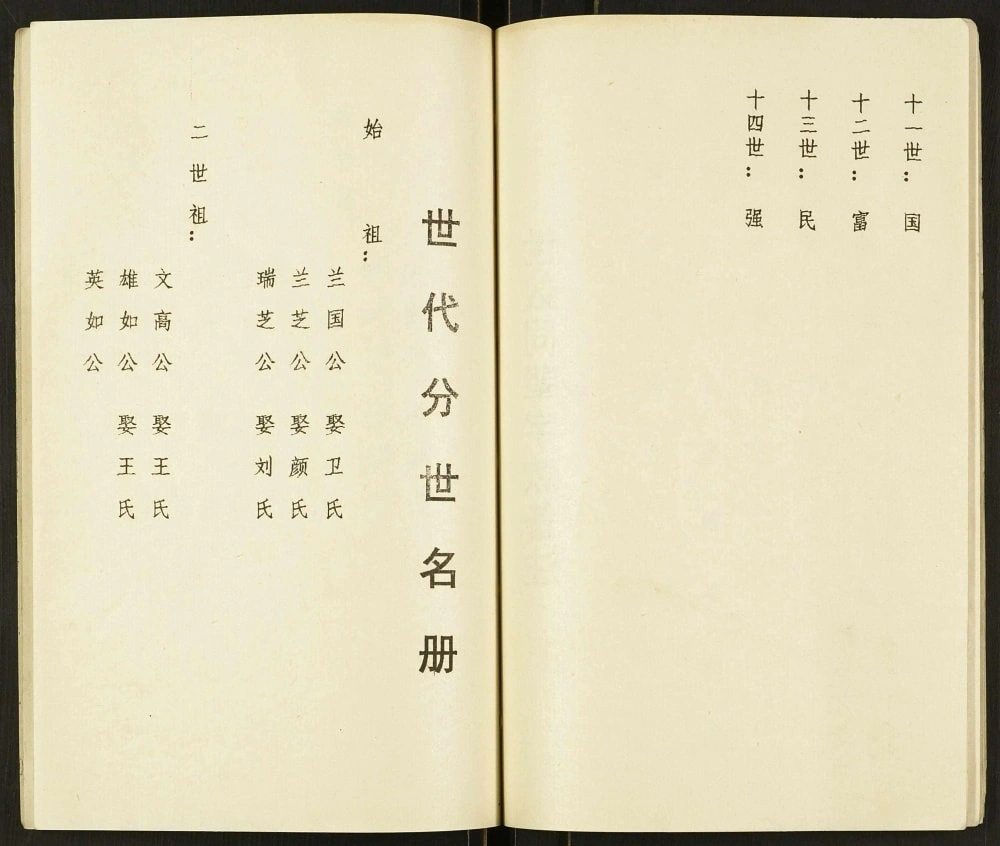 十一世：国
十二世：富
十三世：民
十四世：强
世代分世名册
始祖：
兰国公 娶卫氏
兰芝公 娶颜氏
瑞芝公 娶刘氏
二世祖：
文高公 娶王氏
雄如公 娶王氏
英如公